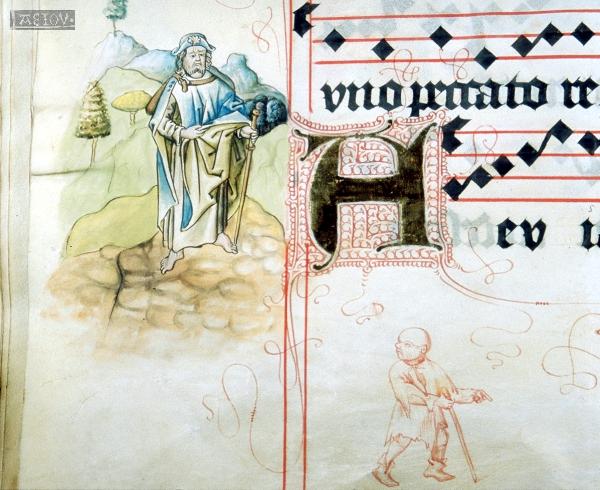 AEIOV
vno peccato re
A
ev